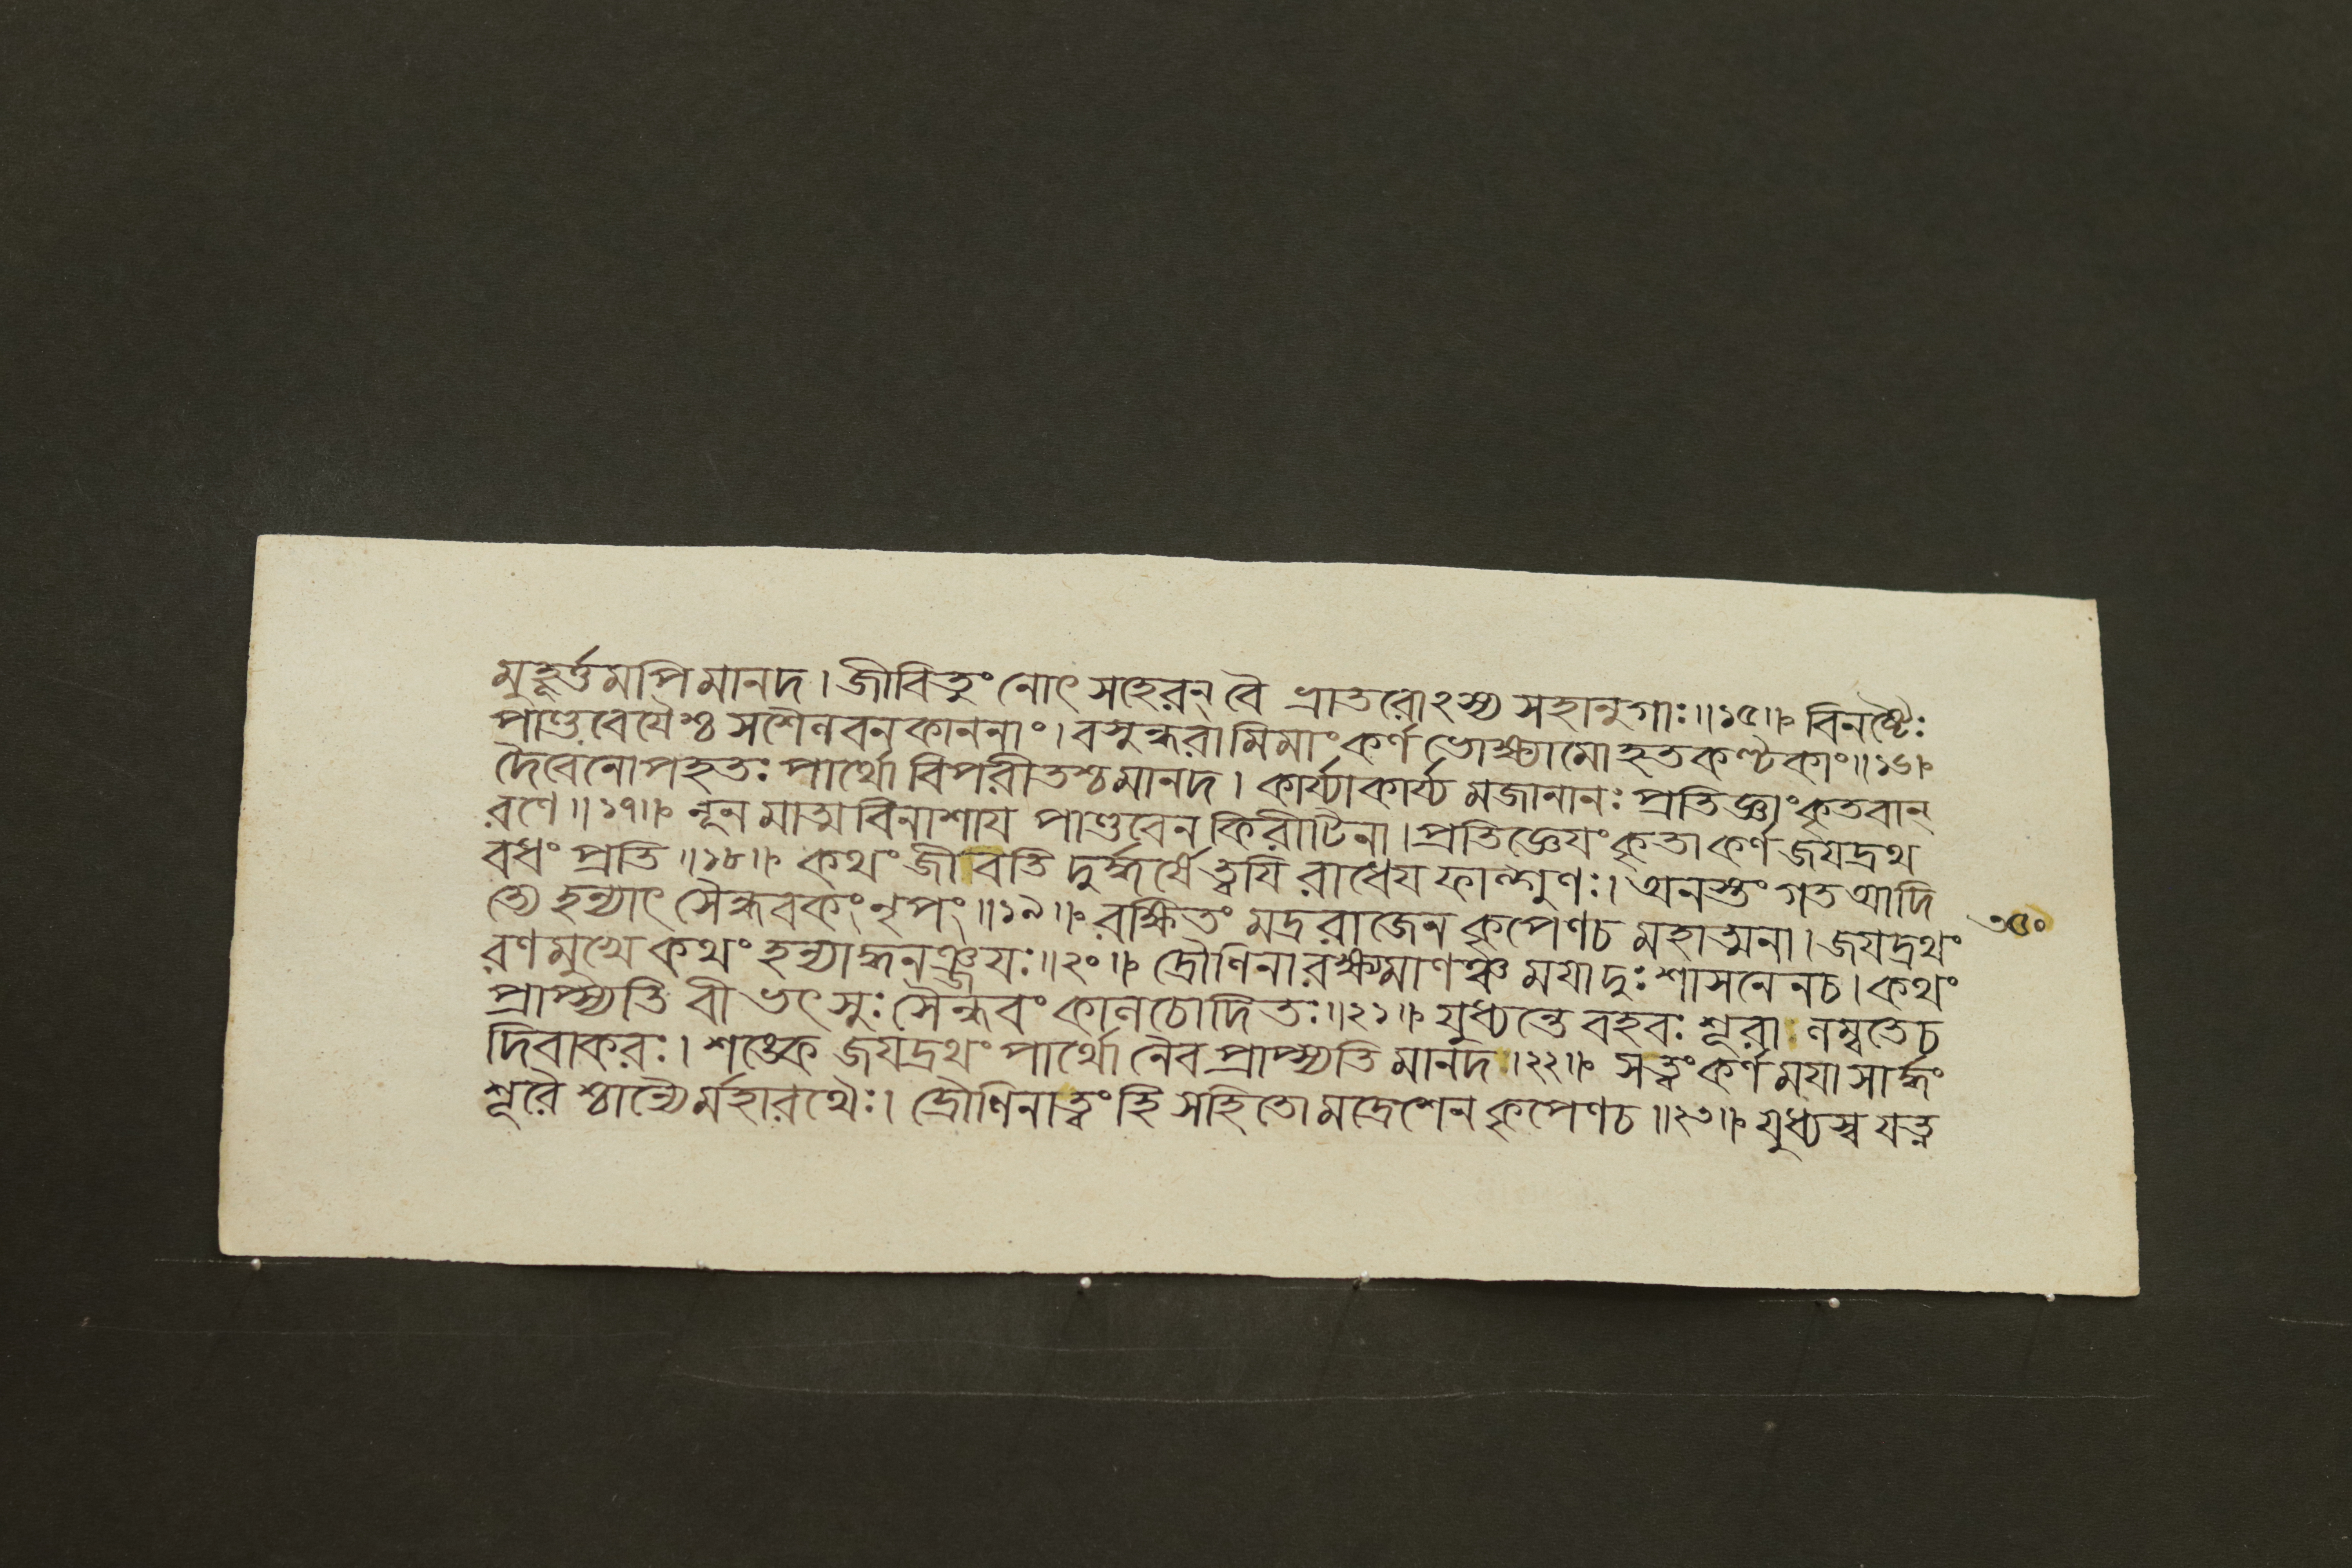 মুহূর্ত্তমপিমানদ। জীবিতুং নোৎসহেরন্ বৈ ভ্রাতরোঽস্য সহানুগাঃ॥১৫॥ বিনষ্টৈঃ
পাণ্ডবেযৈশ্চ সশৈলবনকাননাং। বসুন্ধরামিমাং কর্ণ ভোক্ষ্যামোহতকণ্টকাং॥১৬॥
দৈবেনোপহতঃ পার্থো বিপরীতশ্চমানদ। কার্য্যাকার্য্য মজানানঃ প্রতিজ্ঞাংকৃতবান্
রণে॥১৭॥ নূনমাত্মবিনাশায পাণ্ডবেন কিরীটিনা। প্রতিজ্ঞেযংকৃতাকর্ণ জযদ্রথ
বধং প্রতি॥১৮॥ কথং জীবতি দুর্দ্ধর্ষে ত্বযি রাধেয ফাল্গুণঃ। অনস্তং গতআদি
ত্যে হন্যাৎ সৈন্ধবকং নৃপং॥১৯॥ রক্ষিতং মদ্ররাজেন কৃপেণচ মহাত্মনা। জযদ্রথং
৩৫০
রণমুখে কথং হন্যাদ্ধনঞ্জযঃ॥২০॥ দ্রৌণিনারক্ষ্যমাণঞ্চ মযাদুঃশাসনেনচ। কথং
প্রাপ্স্যতি বীভৎসুঃ সৈন্ধবং কালচোদিতঃ॥২১॥ যুধ্যন্তে বহবঃ শূরা লম্বতেচ
দিবাকরঃ। শঙ্কে জযদ্রথং পার্থো নৈব প্রাপ্স্যতি মানদ॥২২॥ সত্ত্বংকর্ণ মযাসার্দ্ধং
শূরৈ শ্চান্যৈর্মহারথৈঃ। দ্রৌণিনাত্বংহি সহিতো মদ্রেশেন কৃপেণচ॥২৩॥ যুধ্যস্ব যত্ন